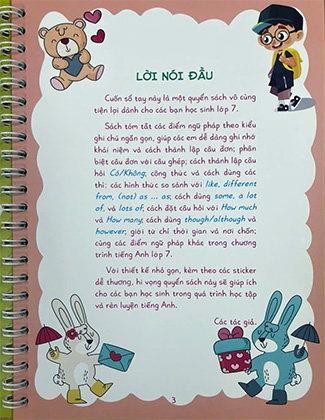 LỜI NÓI ĐẦU
Cuốn sổ tay này là một quyển sách vô cùng
tiện lợi dành cho các bạn học sinh lớp 7.
Sách tóm tắt các điểm ngữ pháp theo kiểu
ghi chú ngắn gọn, giúp các em dễ dàng ghi nhớ
khái niệm và cách thành lập câu đơn; phân
biệt câu đơn với câu ghép; cách thành lập câu
hỏi Có/Không; công thức và cách dùng các
thì; các hình thức so sánh với like, different
from, (not) as ... as; cách dùng some, a lot
of, và lots of; cách đặt câu hỏi với How much
và How many; cách dùng though/although và
however; giới từ chỉ thời gian và nơi chốn;
cùng các điểm ngữ pháp khác trong chương
trình tiếng Anh lớp 7.
Với thiết kế nhỏ gọn, kèm theo các sticker
dễ thương, hi vọng quyển sách này sẽ giúp ích
cho các bạn học sinh trong quá trình học tập
và rèn luyện tiếng Anh.
Các tác giả.
3